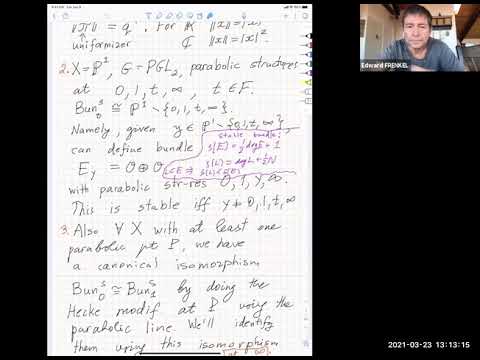 ‖π‖ = q⁻¹. For ℝ ‖x‖ = |x|
uniformizer ℂ ‖x‖ = |x|².
2. X = ℙ¹, G = PGL₂, parabolic structures
at 0, 1, t, ∞, t ∈ F.
Bun₀ˢ ≅ ℙ¹ \ {0, 1, t, ∞}.
Namely, given y ∈ ℙ¹ \ {0, 1, t, ∞},
can define bundle
stable bundle:
s(E) = ½ deg E + 1
s(L) = deg L + ½ N
L ⊂ E ⇒ s(L) < s(E)
E_y = O ⊕ O
with parabolic str-res 0, 1, y, ∞.
This is stable iff y ≠ 0, 1, t, ∞
3. Also ∀ X with at least one
parabolic pt P, we have
a canonical isomorphism
Bun₀ˢ ≅ Bun₁ˢ by doing the
Hecke modif at P using the
parabolic line. We'll identify
them using this isomorphism
Edward FRENKEL
2021-03-23 13:13:15